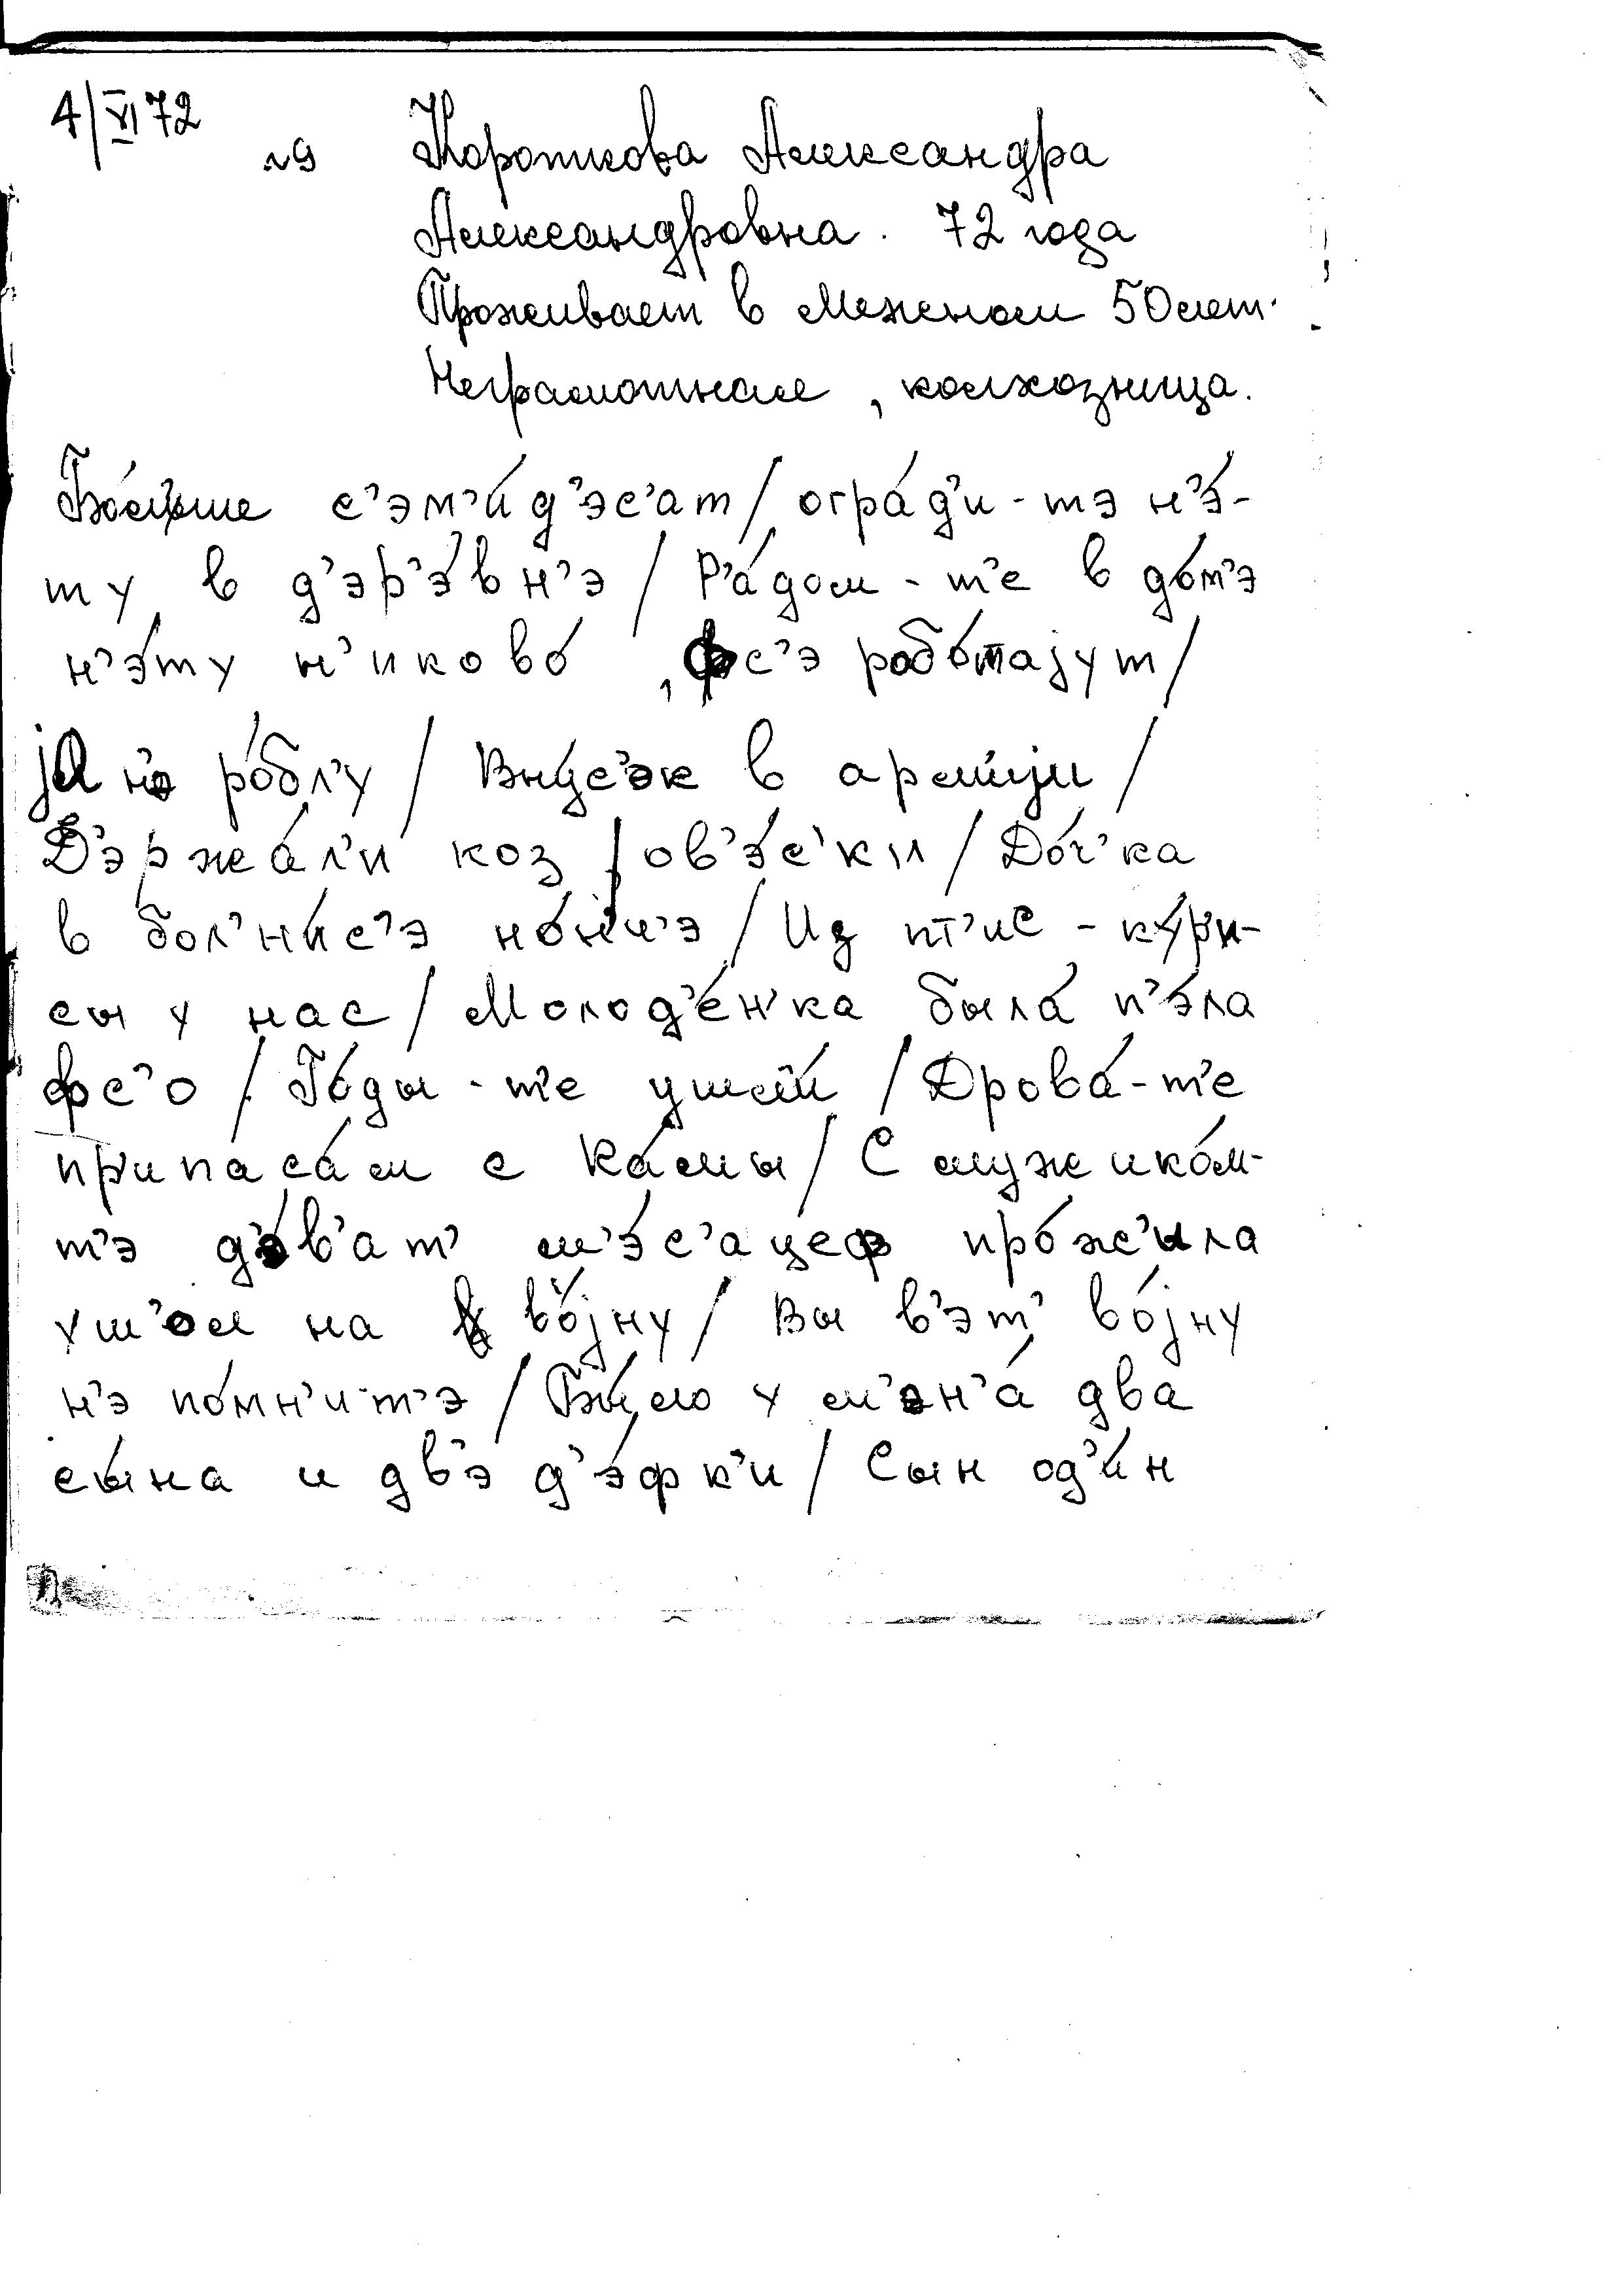 4/VI 72
№9 Короткова Александра
Александровна. 72 года
Проживает в Межном 50 лет.
Неграмотная, колхозница.
Бо́л'ше с'эм'и́д'эс'ат / огра́д'и-тэ н'э́-
ту в д'эр'э́вн'э / Р'а́дом-т'е в до́м'э
н'э́ту н'иково́, фс'э рабо́тајут /
jа н'э ро́бл'у / Вну́с'эк в а́рмији /
Д'эржа́л'и коз, ов'э́с'ки / До́ч'ка
в бол'ни́с'э но́нч'э / Из пт'ис - ку́ри-
сы у нас / Молод'е́н'ка была́ п'э́ла
фс'о / Го́ды-т'е ушли́ / Дрова́-т'е
припаса́м с Ка́мы / С мужико́м-
т'э д'э́в'ат' м'э́с'ацеф про́ж'ила
уш'ол на во́јну / Вы в'эт' во́јну
н'э по́мн'ит'э / Бы́ло у м'эн'а́ два
сы́на и дв'э д'э́фк'и / Сын од'и́н